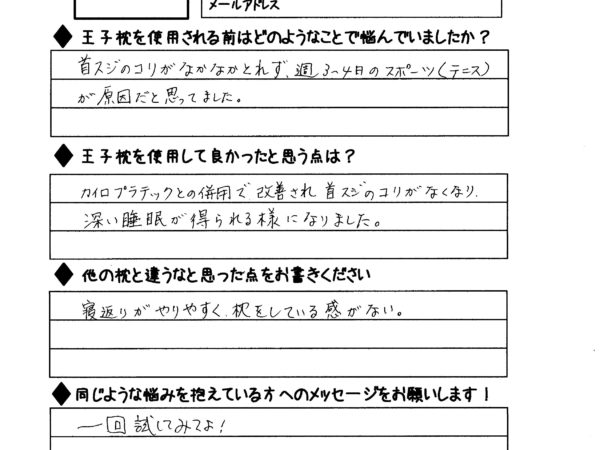 メールアドレス
◆王子枕を使用される前はどのようなことで悩んでいましたか？
首スジのコリがなかなかとれず、週3~4日のスポーツ(テニス)
が原因だと思ってました。
◆王子枕を使用して良かったと思う点は？
カイロプラテックとの併用で改善され首スジのコリがなくなり、
深い睡眠が得られる様になりました。
◆他の枕と違うなと思った点をお書きください
寝返りがやりやすく、枕をしている感がない。
◆同じような悩みを抱えている方へのメッセージをお願いします！
一回試してみてよ！